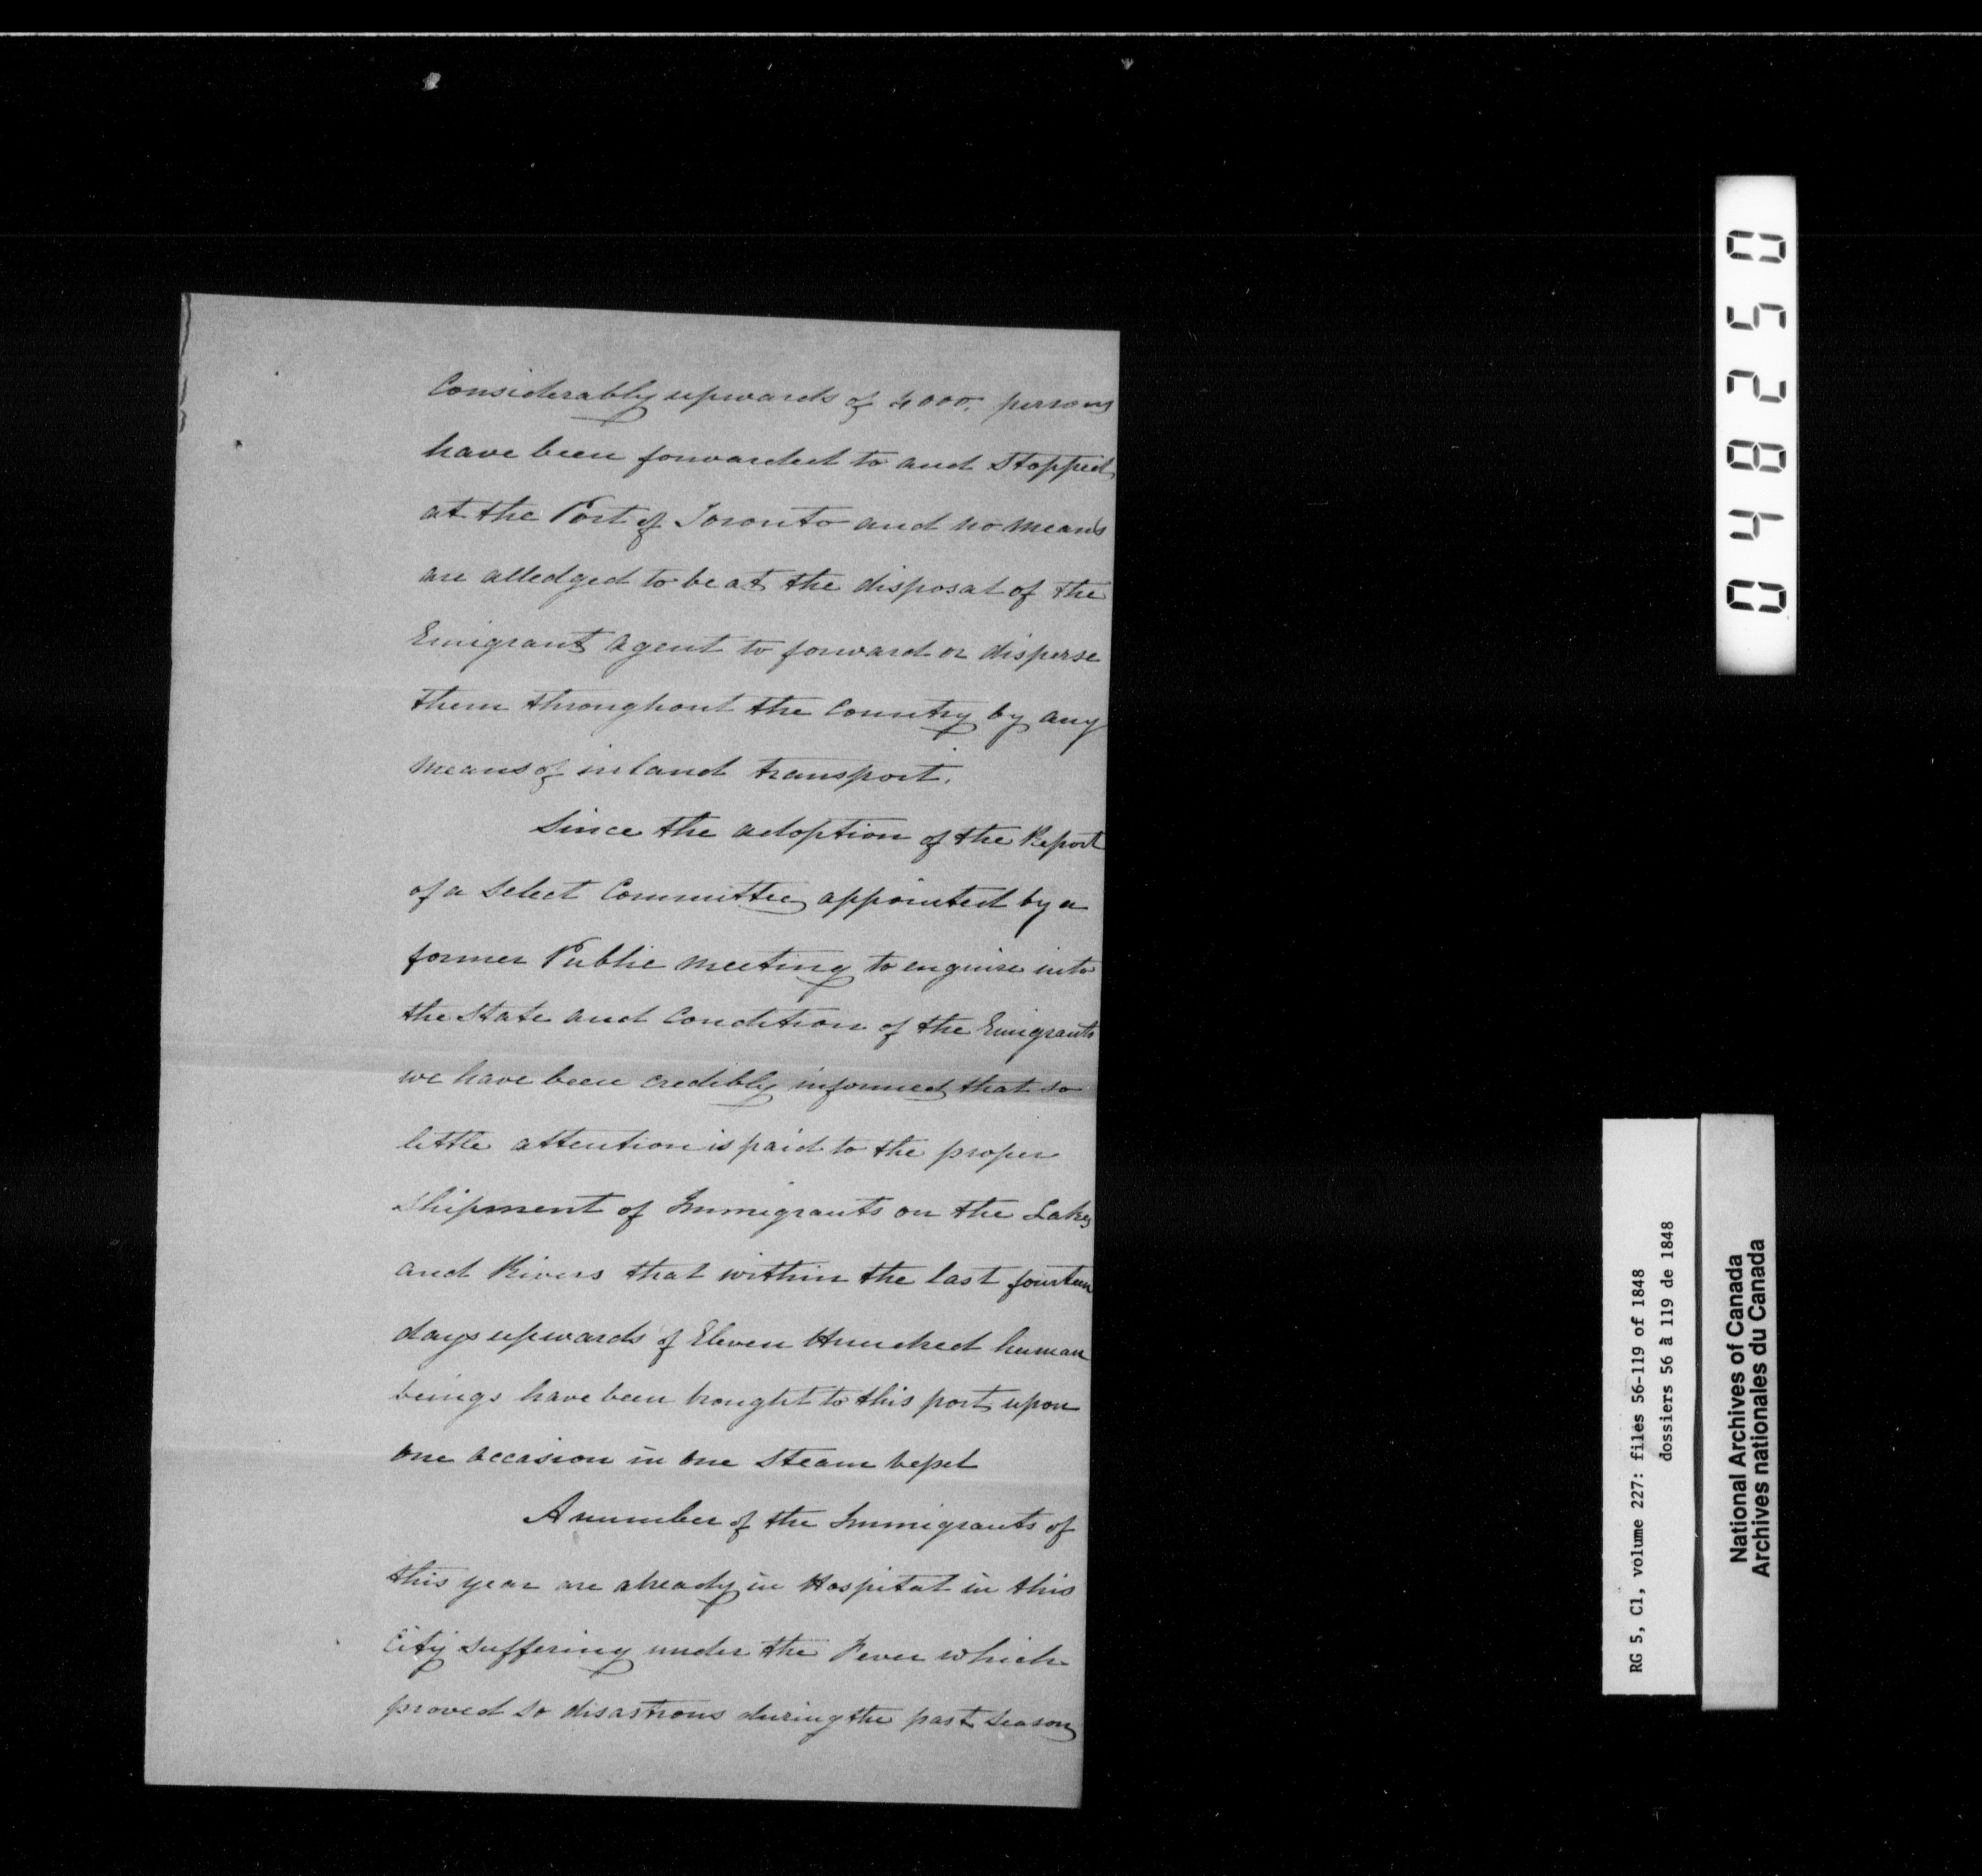 Considerably upwards of 4000. persons
have been forwarded to and Stopped
at the Port of Toronto and no means
are alledged to be at the disposal of the
Emigrant Agent to forward or disperse
them throughout the Country by any
means of inland transport.
Since the adoption of the Report
of a Select Committee appointed by a
former Public meeting to enquire into
the State and Condition of the Emigrants
we have been credibly informed that so
little attention is paid to the proper
Shipment of Immigrants on the Lakes
and Rivers that within the last fourteen
days upwards of Eleven Hundred human
beings have been brought to this port upon
one occasion in one Steam veſsel
A number of the Immigrants of
this year are already in Hospital in this
City suffering under the Fever which
proved so disastrous during the past Season
048250
RG 5, C1, volume 227: files 56-119 of 1848
dossiers 56 à 119 de 1848
National Archives of Canada
Archives nationales du Canada